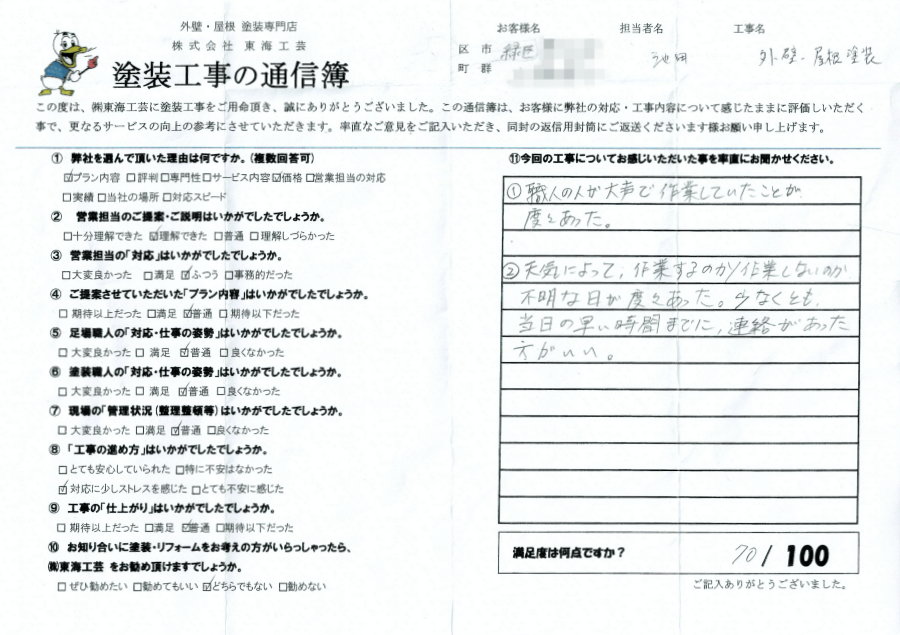 外壁・屋根 塗装専門店
株式会社 東海工芸
塗装工事の通信簿
お客様名
担当者名
工事名
区 市
町 群
緑区
池田
外壁・屋根塗装
この度は、㈱東海工芸に塗装工事をご用命頂き、誠にありがとうございました。この通信簿は、お客様に弊社の対応・工事内容について感じたままに評価しいただく
事で、更なるサービスの向上の参考にさせていただきます。率直なご意見をご記入いただき、同封の返信用封筒にご返送くださいます様お願い申し上げます。
① 弊社を選んで頂いた理由は何ですか。(複数回答可)
☑プラン内容 □評判□専門性□サービス内容☑価格□営業担当の対応
□実績□当社の場所□対応スピード
② 営業担当のご提案・ご説明はいかがでしたでしょうか。
□十分理解できた ☑理解できた □普通□理解しづらかった
③ 営業担当の「対応」はいかがでしたでしょうか。
□大変良かった □満足☑ふつう□事務的だった
④ ご提案させていただいた「プラン内容」はいかがでしたでしょうか。
□期待以上だった□満足☑普通□期待以下だった
⑤ 足場職人の「対応・仕事の姿勢」はいかがでしたでしょうか。
□大変良かった□ 満足 ☑普通□良くなかった
⑥ 塗装職人の「対応・仕事の姿勢」はいかがでしたでしょうか。
□大変良かった□ 満足 ☑普通□良くなかった
⑦ 現場の「管理状況(整理整頓等)はいかがでしたでしょうか。
□大変良かった□満足☑普通□良くなかった
⑧ 「工事の進め方」はいかがでしたでしょうか。
□とても安心していられた□特に不安はなかった
☑対応に少しストレスを感じた□とても不安に感じた
⑨ 工事の「仕上がり」はいかがでしたでしょうか。
□期待以上だった□満足☑普通□期待以下だった
⑩ お知り合いに塗装・リフォームをお考えの方がいらっしゃったら、
㈱東海工芸 をお勧め頂けますでしょうか。
□ぜひ勧めたい□勧めてもいい☑どちらでもない□勧めない
⑪今回の工事についてお感じいただいた事を率直にお聞かせください。
①職人の人が大声で作業していたことが、
度々あった。
②天気によって、作業するのか/作業しないのか、
不明な日が度々あった。少なくとも、
当日の早い時間までに、連絡があった
方がいい。
満足度は何点ですか?
70/100
ご記入ありがとうございました。